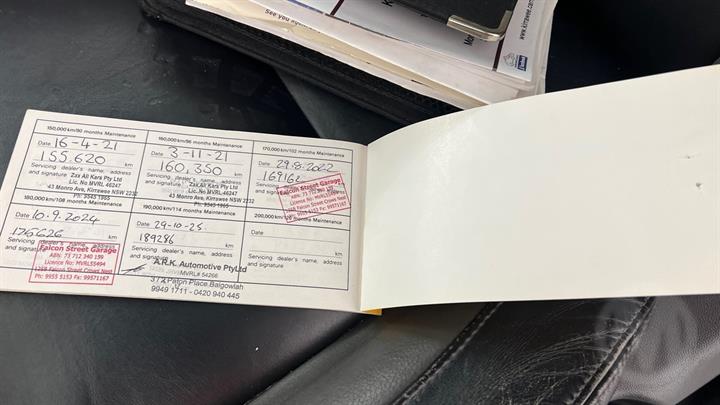 See you again
www.kirrawee.com
150,000 km/90 months Maintenance
Date 16-4-21
155.620 km
Servicing dealer's name, address
and signature Zax Ali Kara Pty Ltd
Lic. No MVRL 46247
43 Monro Ave, Kirrawee NSW 2232
Ph: 9545 1965
160,000 km/96 months Maintenance
Date 3-11-21
160,350 km
Servicing dealer's name, address
and signature Zax Ali Kara Pty Ltd
Lic. No MVRL 46247
43 Monro Ave, Kirrawee NSW 2232
Ph: 9545 1965
170,000 km/102 months Maintenance
Date 29.8.2022
169162 km
Servicing
and signature
Falcon Street Garage
ABN: 73 712 340 199
Licence No: MVRL55494
268 Falcon Street Crows Nest
Ph: 9955 5153 Fx: 99571167
180,000 km/108 months Maintenance
Date 10.9.2024
176626 km
Servicing dealer's name, address
and signature
Falcon Street Garage
ABN: 73 712 340 199
Licence No: MVRL55494
268 Falcon Street Crows Nest
Ph: 9955 5153 Fx: 99571167
190,000 km/114 months Maintenance
Date 29-10-25.
189286 km
Servicing dealer's name, address
and signature
A.R.K. Automotive PtyLtd
MVRL# 54266
Paton Place, Balgowlah
9949 1711 - 0420 940 445
200,000 km
Date
km
Servicing dealer's name, address
and signature